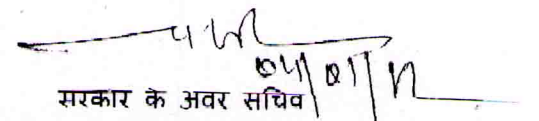 04/01/
सरकार के अवर सचिव